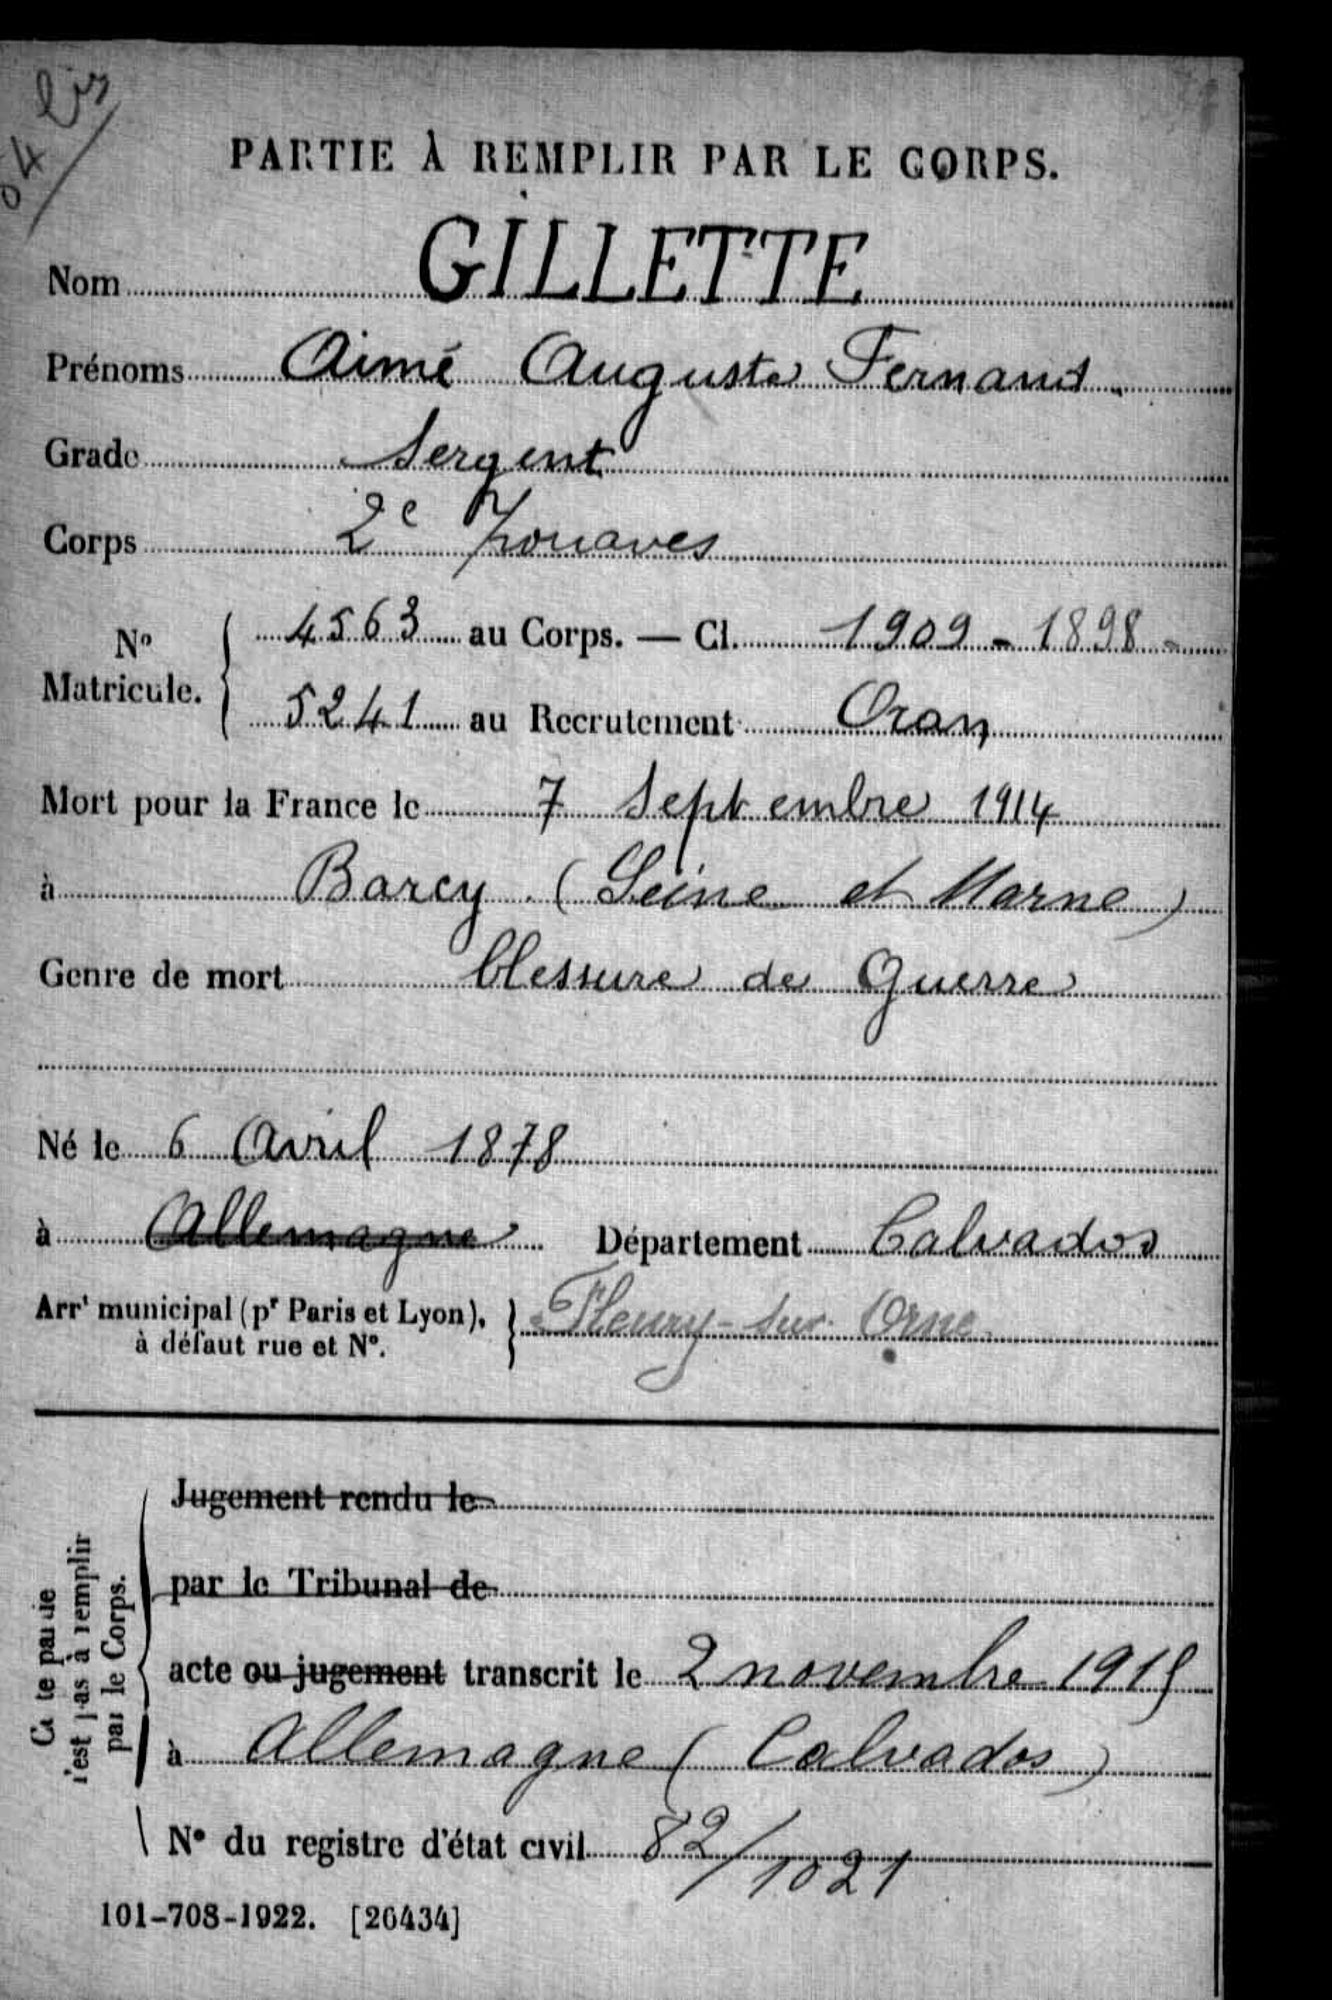 bis
PARTIE À REMPLIR PAR LE CORPS.
Nom GILLETTE
Prénoms Aimé Auguste Fernand
Grade Sergent
Corps 2e Zouaves
No Matricule. { 4563 au Corps. — Cl. 1909 - 1898 -
5241 au Recrutement Oran
Mort pour la France le 7 Septembre 1914
à Barcy (Seine et Marne)
Genre de mort blessure de Guerre
Né le 6 Avril 1878
à Allemagne Département Calvados
Arrt municipal (pr Paris et Lyon), à défaut rue et No. } Fleury-sur-Orne
Jugement rendu le
par le Tribunal de
acte ou jugement transcrit le 2 novembre 1915
à Allemagne (Calvados)
No du registre d'état civil 82/1021
Cette partie n'est pas à remplir par le Corps.
101-708-1922. [26434]